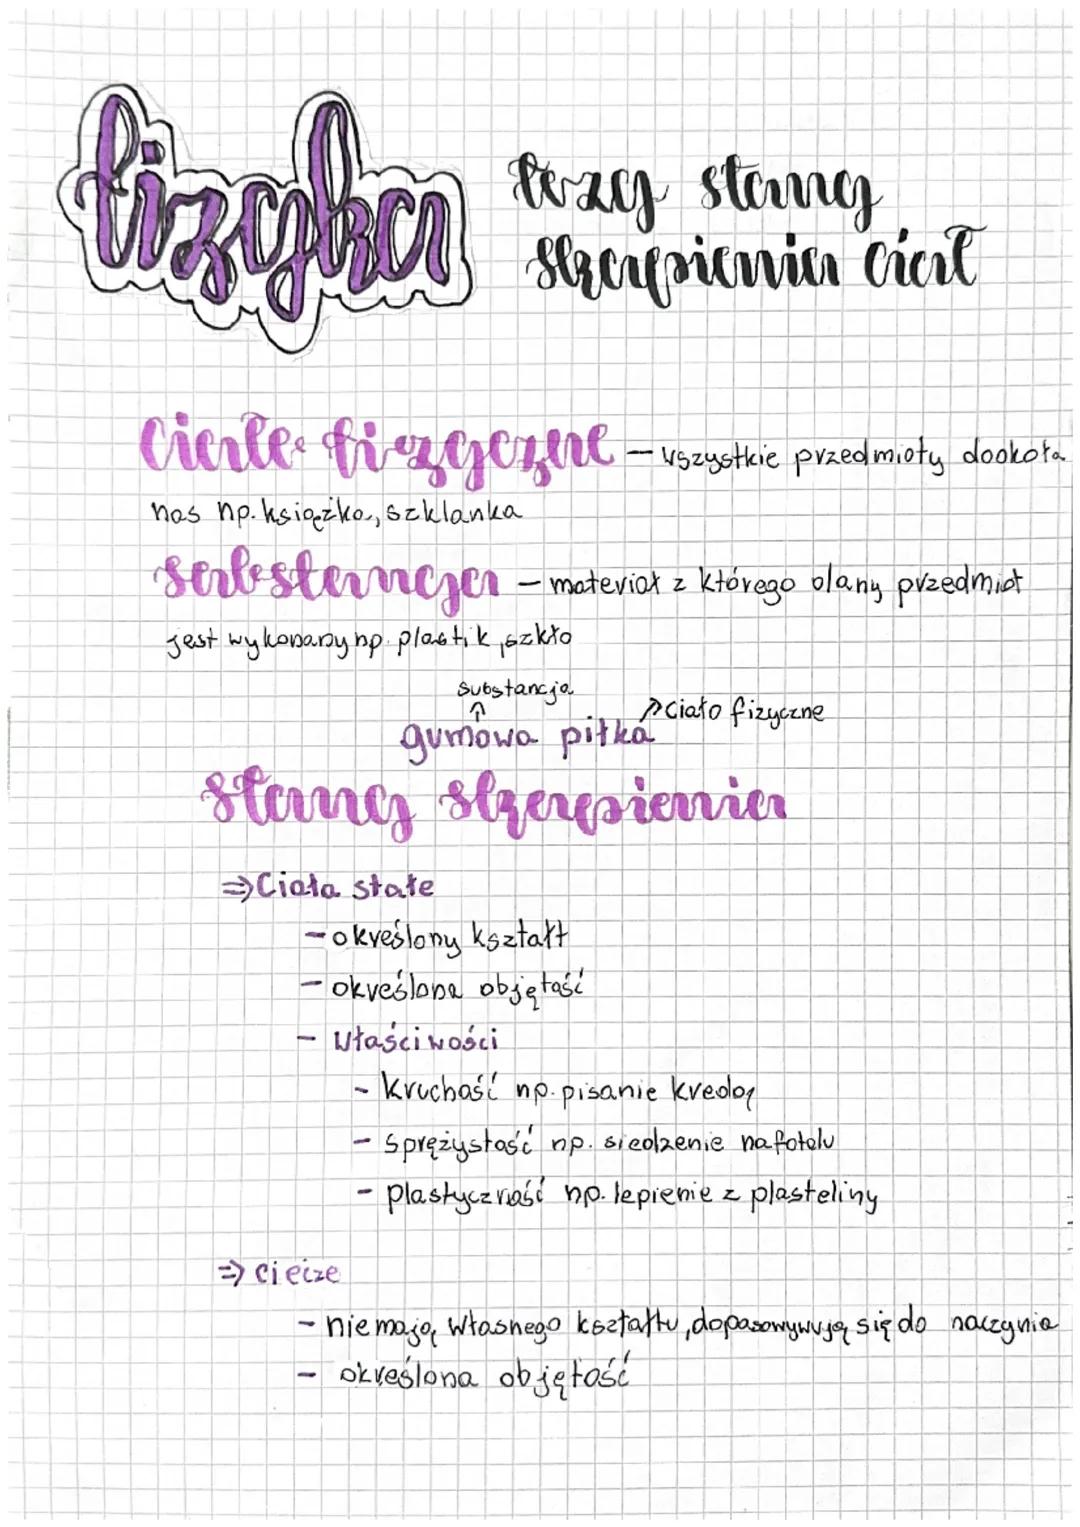 fizyka
trzy stany
skupienia ciał
Ciała fizyczne – wszystkie przedmioty dookoła
nas np. książka, szklanka
substancja – materiał z którego dany przedmiot
jest wykonany np. plastik, szkło
substancja
↗ Ciało fizyczne
gumowa piłka
stany skupienia
⇒ Ciała stałe
- określony kształt
- określona objętość
- Właściwości
- kruchość np. pisanie kredą
- sprężystość np. siedzenie na fotelu
- plastyczność np. lepienie z plasteliny
⇒ ciecze
- nie mają własnego kształtu, dopasowywują się do naczynia
- określona objętość